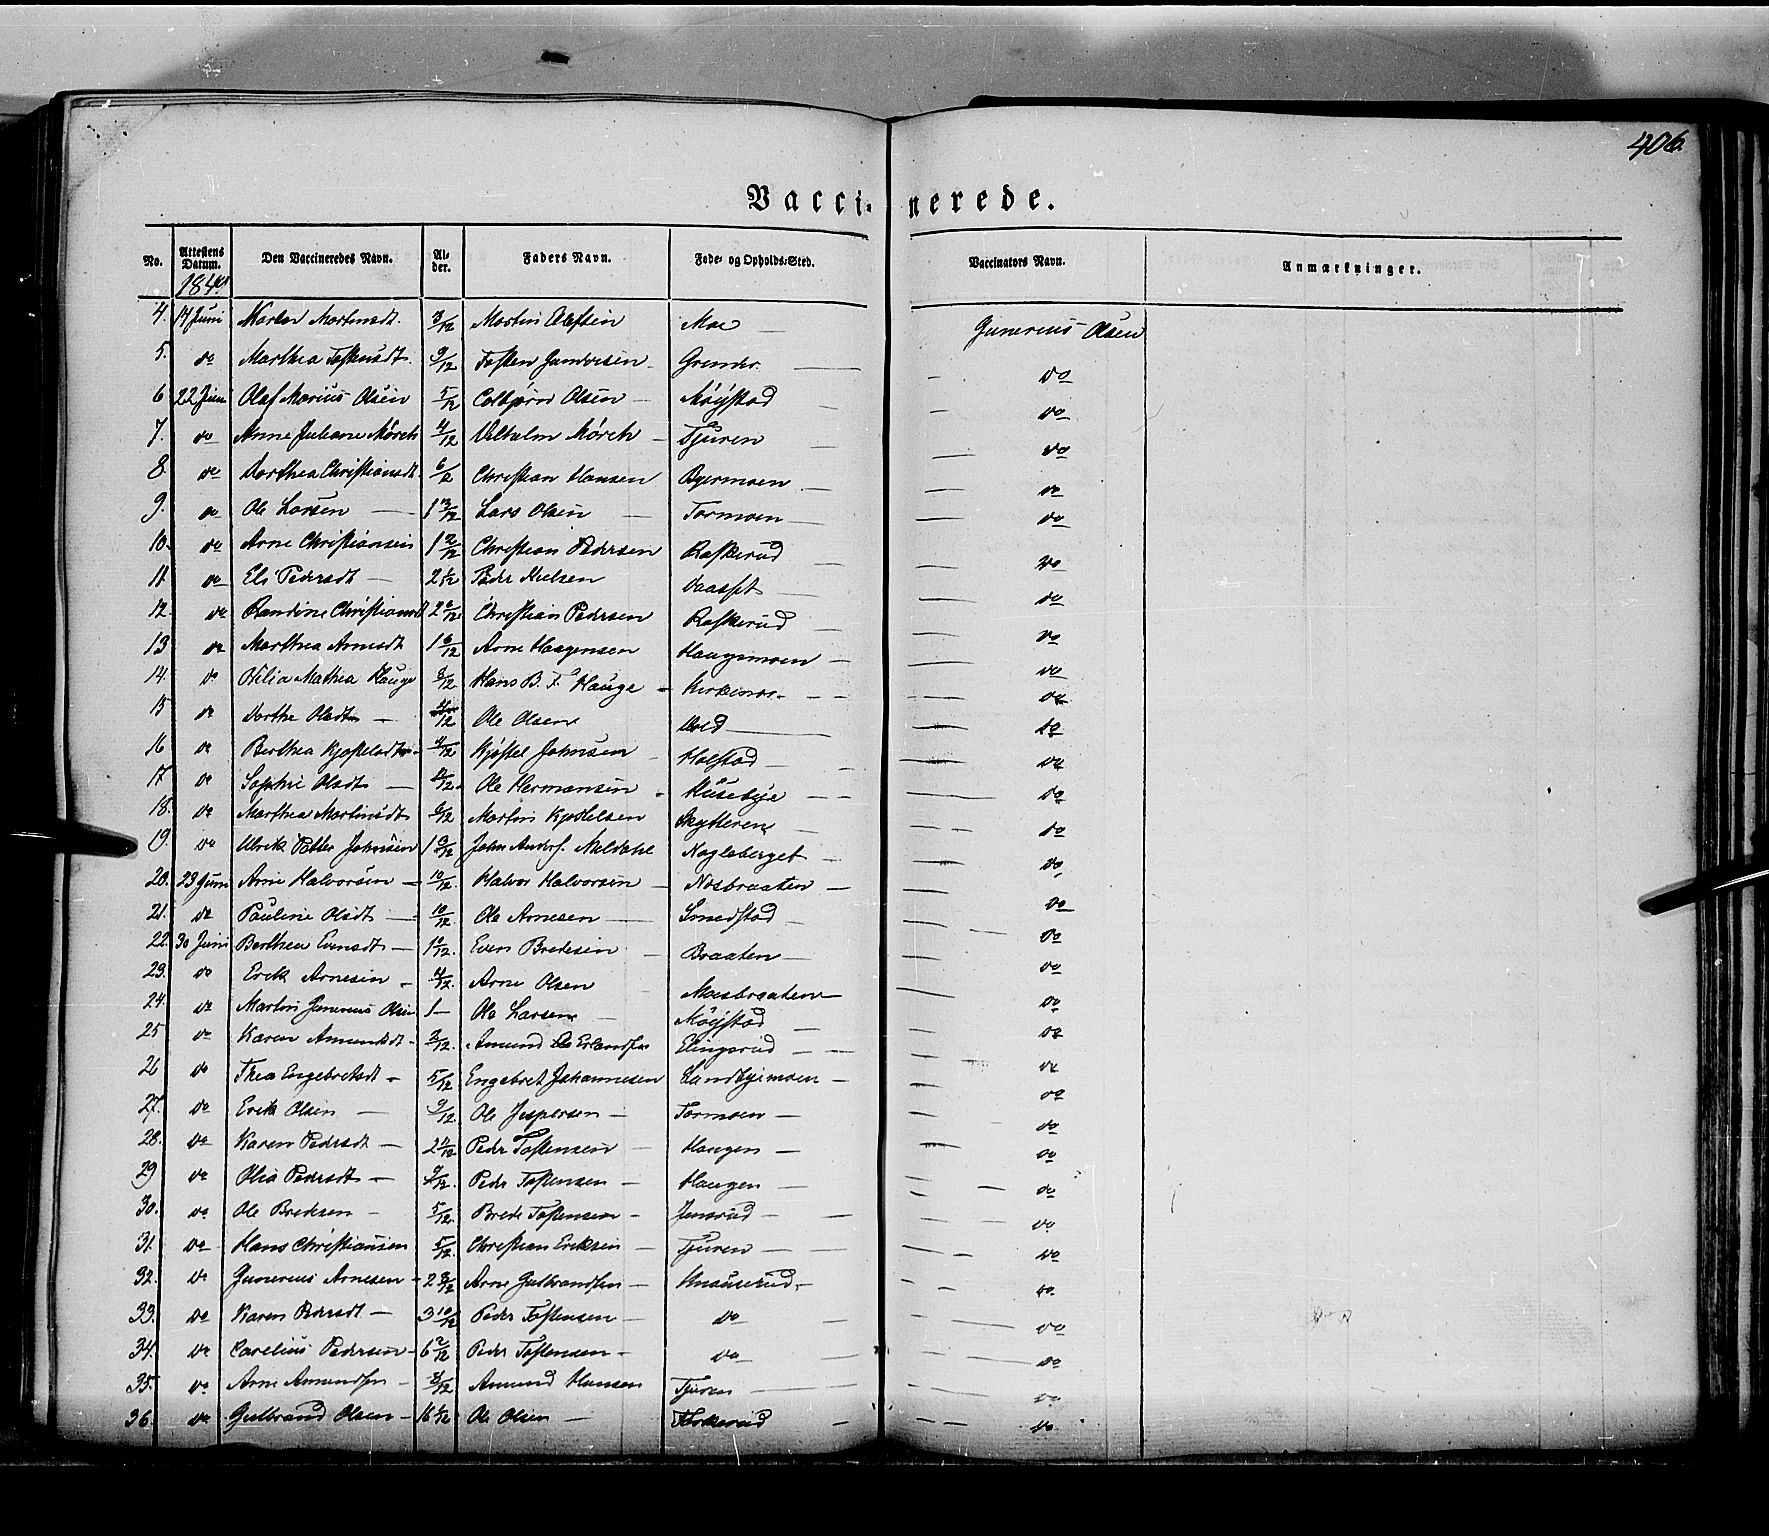 406.
Vaccinerede.
No. Attestens Datum. Den Vaccineredes Navn. Alder. Faders Navn. Føde- og Opholds-Sted. Vaccinators Navn. Anmærkninger.
4. 14 Juni Maren Martinsdt. 3/12 Martin Mae — Gunerius Olsen
5. do Marthea Tostensdt 9/12 Tosten Gundersen Grinder — do
6 22 Juni Olaf Marius Olsen 5/12 Colbjørn Olsen — Møystad — do
7. do Anne Juliane Mørch 4/12 Vilhelm Mørch — Tjuren — do
8. do Dorthea Christiansdt. 6/12 Christian Hansen Bgermoen — do
9. do Ole Larsen — 1 3/12 Lars Olsen — Tormoen — do
10. do Arne Christiansen 1 2/12 Christian Pedersen Raskerud — do
11. do Eli Pedersdt — 2 1/12 Peder Nielsen Vaasset — do
12. do Randine Christiansdt 2 6/12 Christian Pedersen Raskerud — do
13 do Marthea Arnesdt 1 6/12 Arne Haagensen Haugsmoen — do
14. do Otilia Mathea Hauge 3/12 Hans B. T. Hauge — Kirkemoe — do
15 do Dorthe Olsdt — /12 Ole Olsen Vold — do
16 do Berthea Kjøstelsdt — 4/12 Kjøstel Johnsen Holstad — do
17 do Sophie Olsdt — 4/12. Ole Hermansen Husebye — do
18. do Marthea Martinsdt 6/12 Martin Kjøstelsen Skytteren — do
19. do Ulrik Petter Johnsen 1 9/12 John Andrs. Meldahl Naglaberget — do
20. 23 Juni Arne Halvorsen — 10/12. Halvor Halvorsen — Nosbraaten — do
21. do Pauline Olsdt — 10/12. Ole Arnesen — Smedstad — do
22. 30 Juni Berthea Evensdt — 1 /12. Even Bredesen — Braaten — do
23. do Erik Arnesen — 4/12. Arne Olsen Moesbraaten — do
24. do Martin Gunerius Olsen 1 — Ole Larsen — Møystad — do
25 do Karen Amundsdt. 3/12. Amund Erlandsen Elingsrud — do
26 do Thea Engebretsdt — 5/12 Engebret Johannesen Sandbyemoen — do
27. do Erik Olsen — 9/12. Ole Jespersen — Tormoen — do
28. do Karen Pedersdt — 2 /12 Peder Tostensen — Haugen — do
29 do Olia Pedersdt — 9/12. Peder Tostensen — Haugen — do
30. do Ole Bredesen — 5/12. Brede Tostensen — Jensrud — do
31. do Hans Christiansen 5/12. Christian Eriksen — Tjuren — do
32. do Gunerius Arnesen — 2 3/12 Arne Gulbrandsen — Knauserud — do
33. do Karen Pedersdt — 3 10/12 Peder Tostensen — do — do
34. do Carelius Pedersen — 6 2/12 Peder Tostensen — do — do
35. do Arne Amundsen — 3/12 Amund Hansen Tjuren — do
36. do Gulbrand Olsen — 16 /12 Ole Olsen — — do